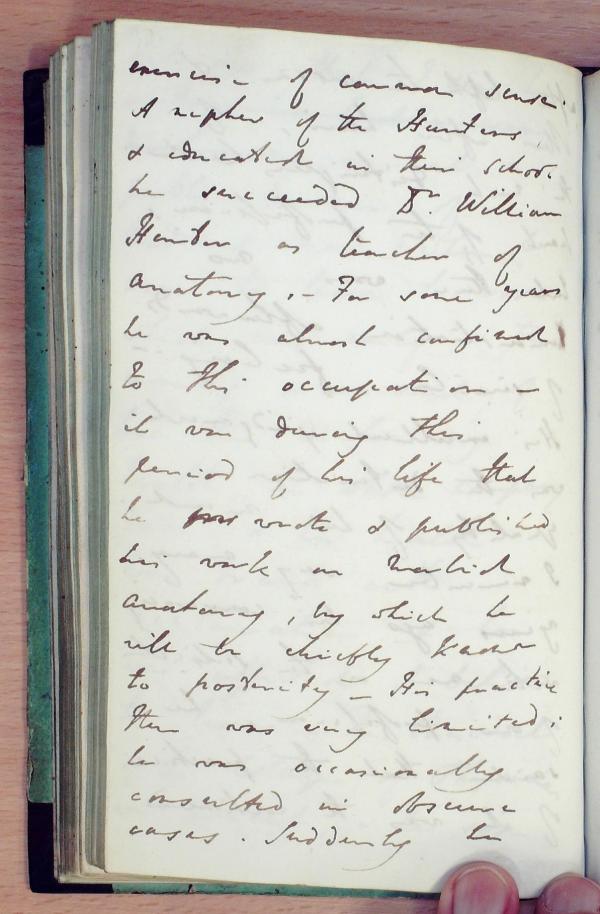 exercise of common sense.
A nephew of the Hunters,
& educated in their school
he succeeded Dr. William
Hunter as teacher of
anatomy. – For some years
he was almost confined
to this occupation –
it was during this
period of his life that
he wrote & published
his work on morbid
anatomy, by which he
will be chiefly known
to posterity – His practice
then was very limited:
he was occasionally
consulted in obscure
cases. Suddenly he